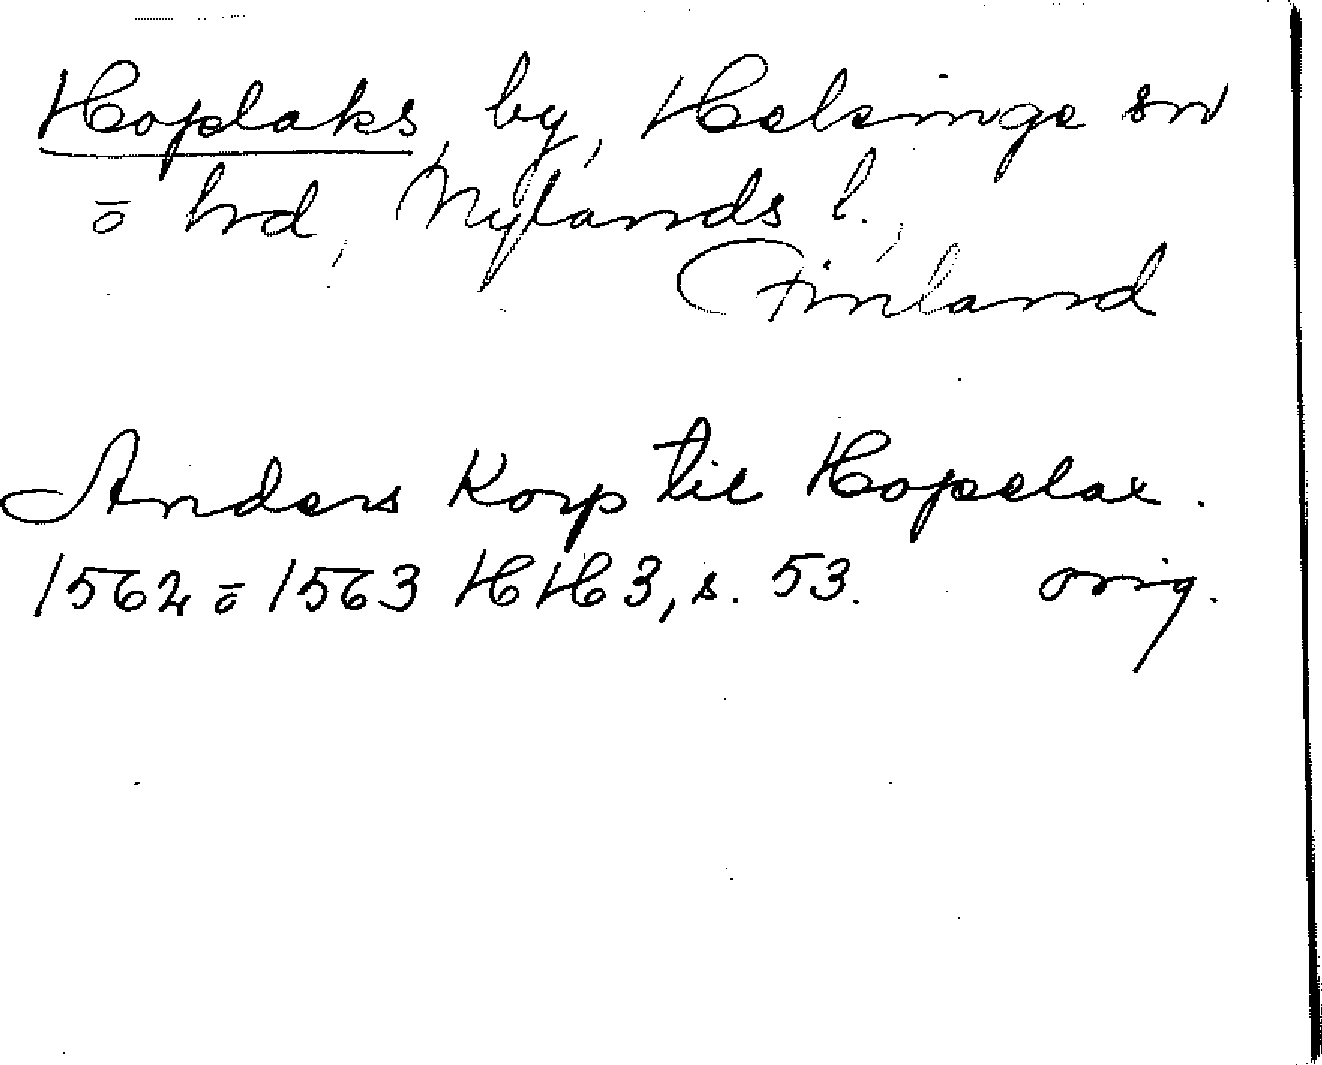 Hoplaks, by, Helsinge sn
o hrd, Nylands l.,
Finland
Anders Korp til Hopelax.
1562 o 1563 HH3, s. 53. orig.